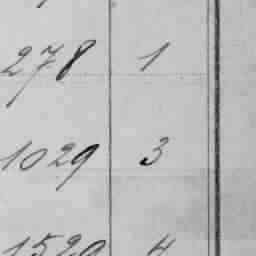 278 1
1029 3
1529 4